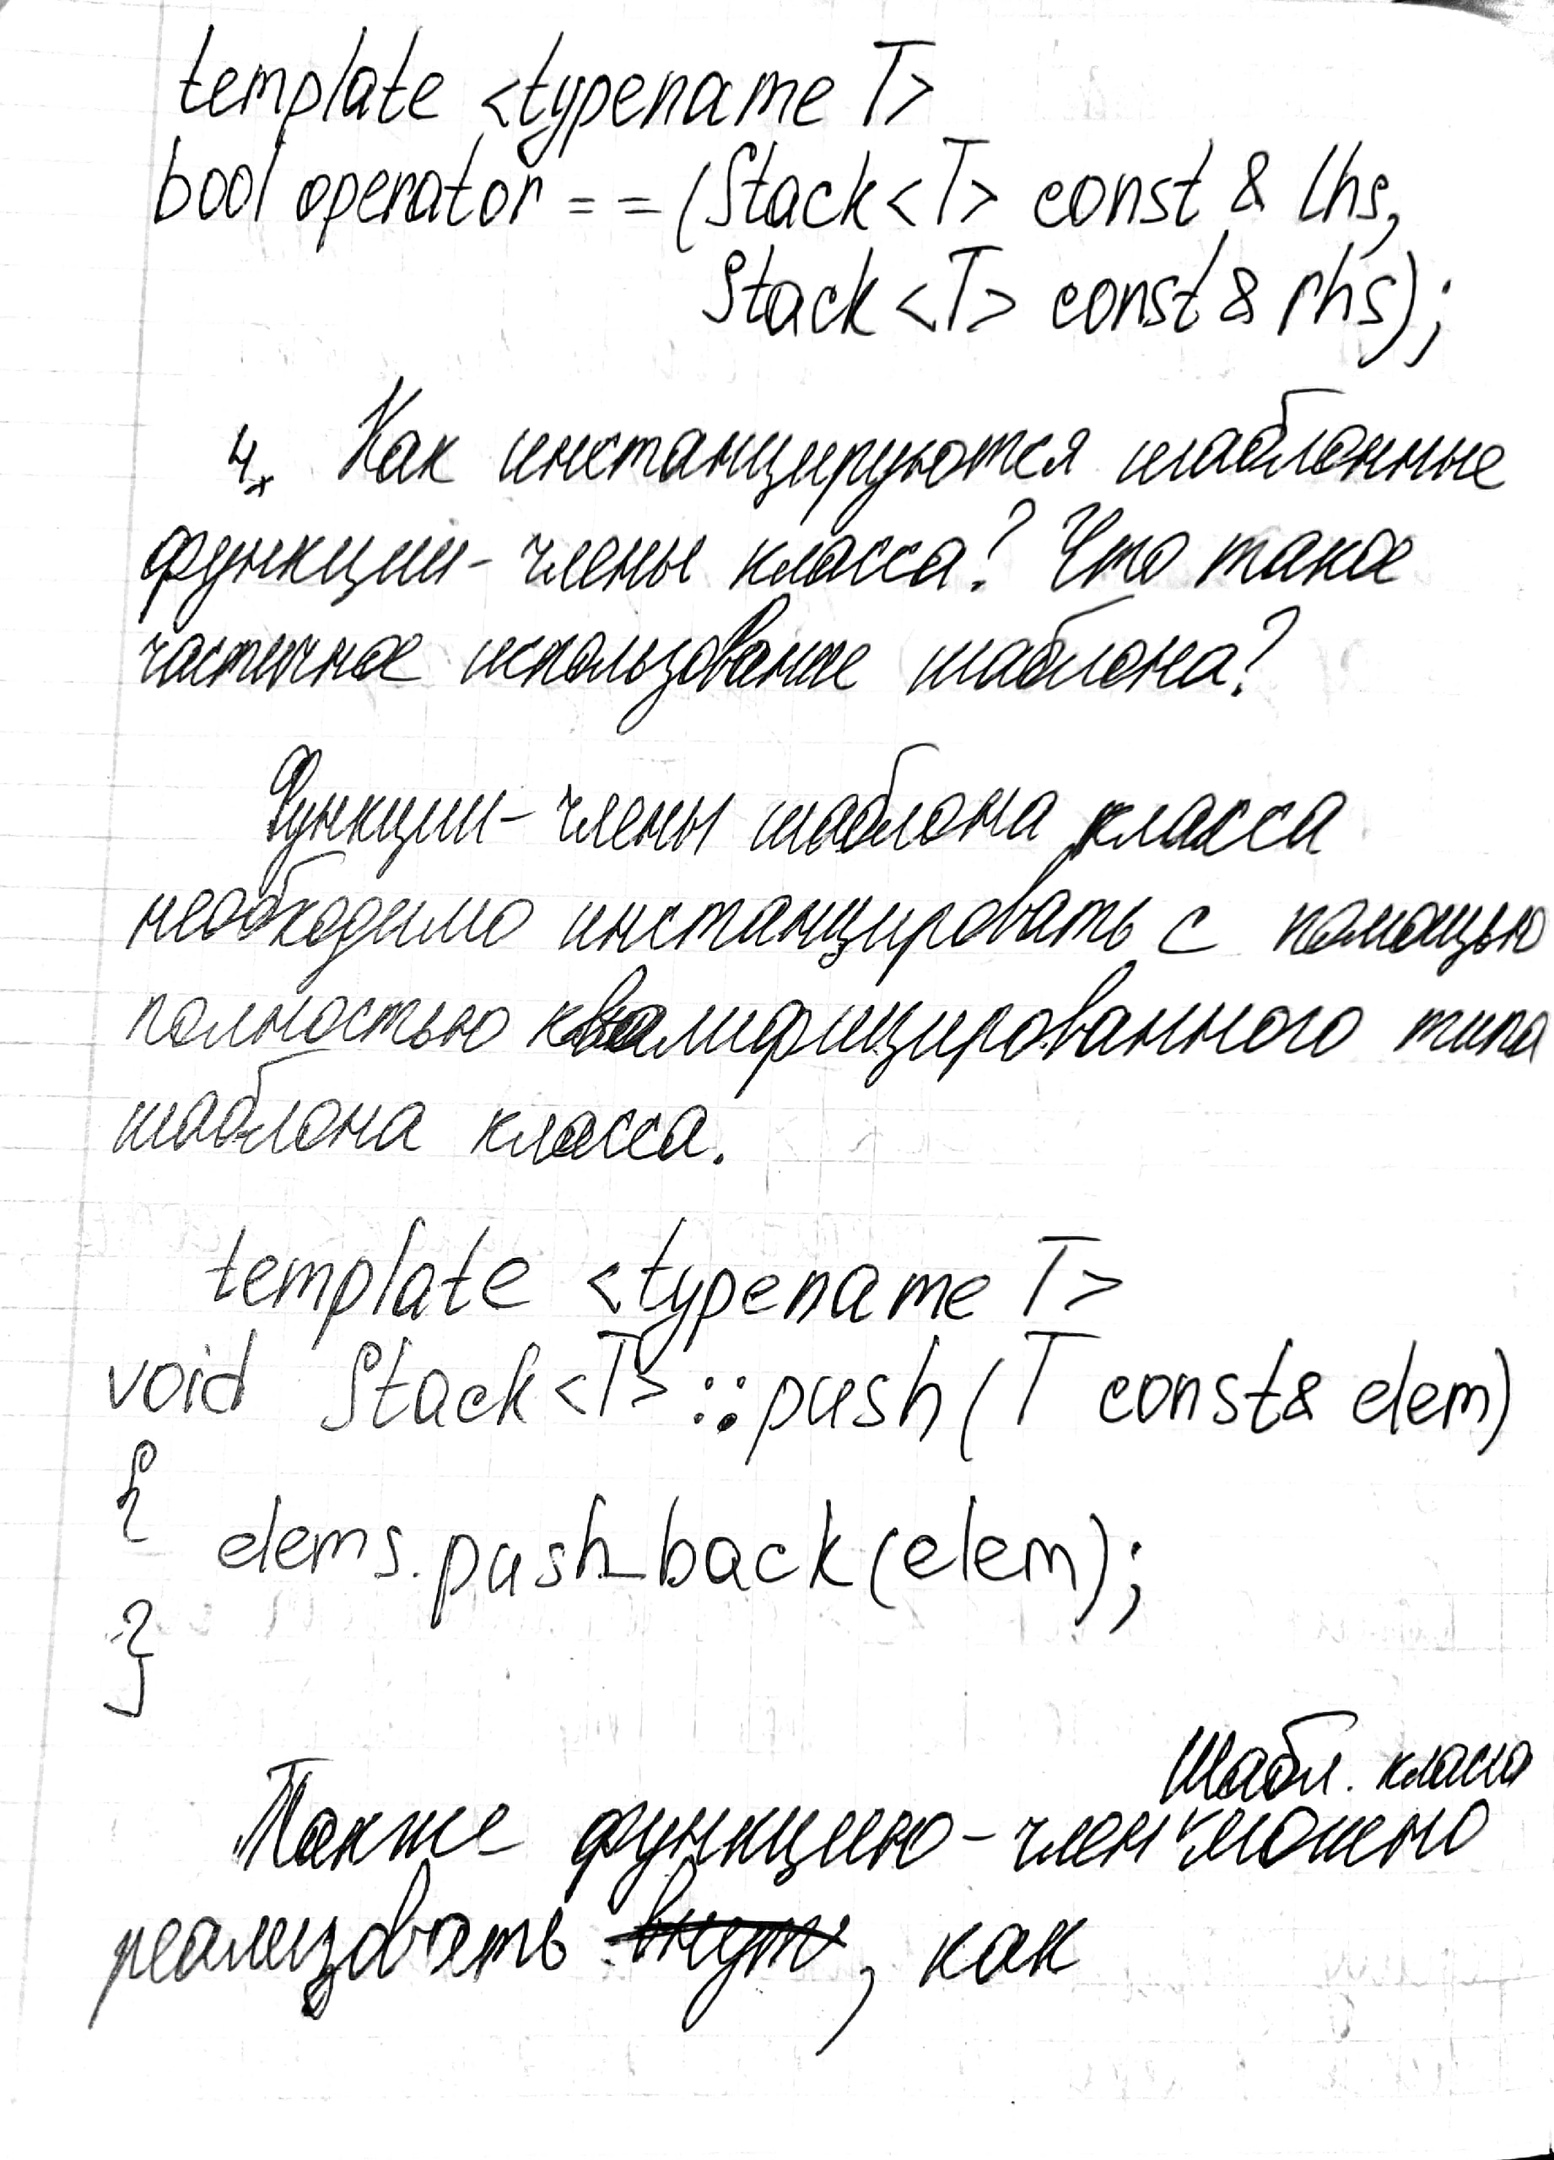 template <typename T>
bool operator == (Stack<T> const & lhs,
Stack<T> const & rhs);
4. Как инстанцируются шаблонные
функции-члены класса? Что такое
частичное использование шаблона?
Функции-члены шаблона класса
необходимо инстанцировать с помощью
полностью квалифицированного типа
шаблона класса.
template <typename T>
void Stack<T>::push(T const& elem)
{
elems.push_back(elem);
}
Шабл. класса
Также функцию-член можно
реализовать внутри, как